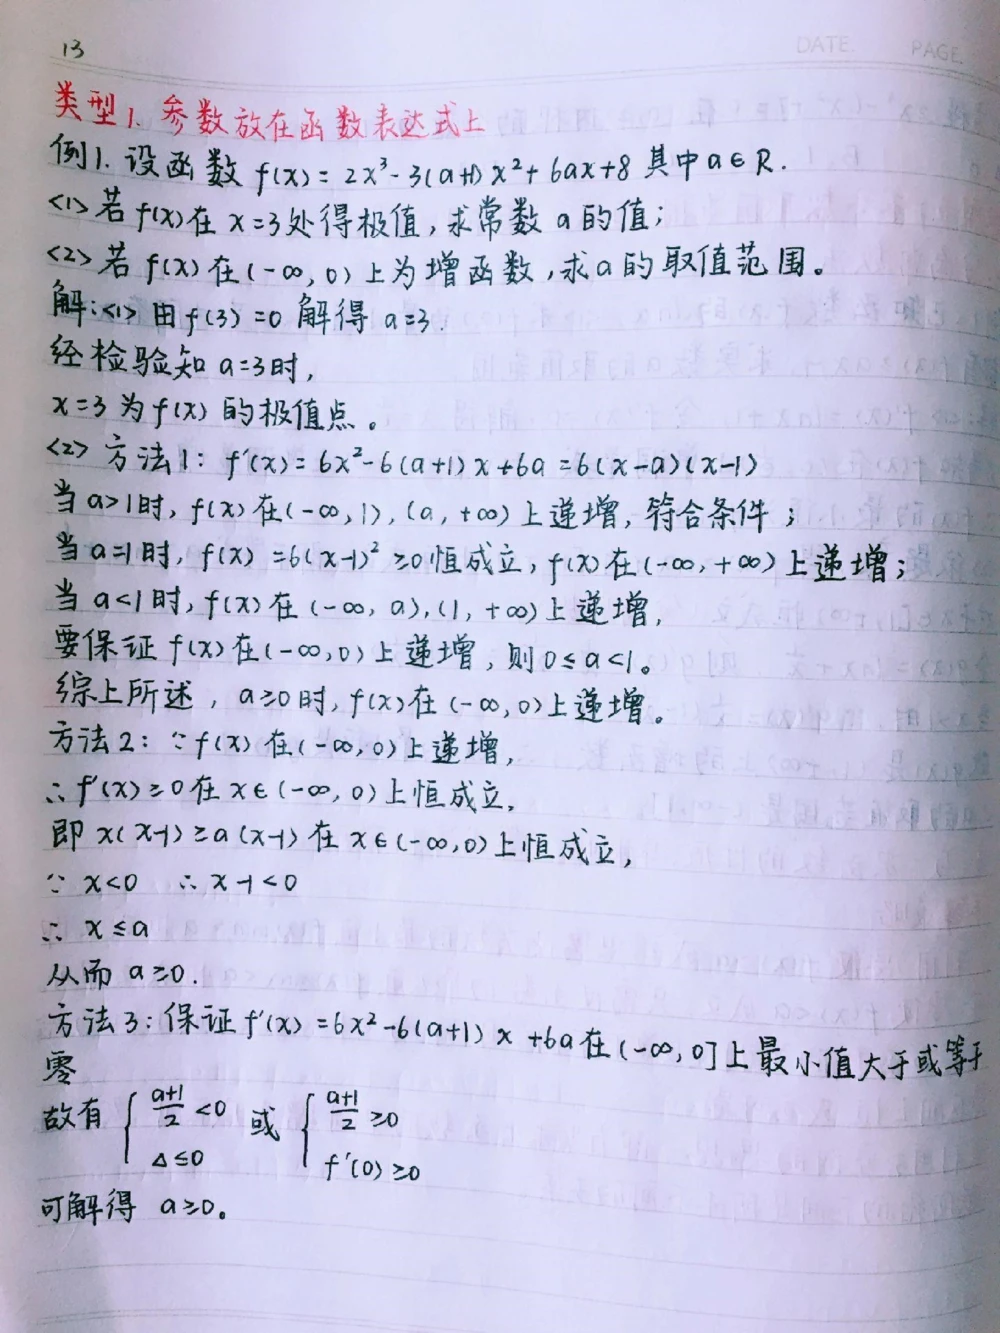 13
DATE. PAGE.
类型1. 参数放在函数表达式上
例1. 设函数 f(x) = 2x³-3(a+1)x²+6ax+8 其中a∈R.
<1>若 f(x)在 x=3处得极值,求常数 a的值;
<2>若 f(x)在(-∞,0)上为增函数,求a的取值范围。
解:<1>由 f(3)=0 解得 a=3.
经检验知 a=3时,
x=3为f(x)的极值点。
<2> 方法1: f'(x)=6x²-6(a+1)x+6a=6(x-a)(x-1)
当a>1时, f(x)在(-∞,1),(a,+∞)上递增,符合条件;
当a=1时, f(x)=6(x-1)²≥0恒成立, f(x)在(-∞,+∞)上递增;
当a<1时, f(x)在(-∞,a),(1,+∞)上递增,
要保证f(x)在(-∞,0)上递增,则0≤a<1。
综上所述, a≥0时, f(x)在(-∞,0)上递增。
方法2: ∵f(x)在(-∞,0)上递增,
∴f'(x)≥0在x∈(-∞,0)上恒成立,
即 x(x-1)≥a(x-1)在x∈(-∞,0)上恒成立,
∵ x<0 ∴ x-1<0
∴ x≤a
从而 a≥0.
方法3:保证f'(x)=6x²-6(a+1)x+6a在(-∞,0]上最小值大于或等于
零
故有 { (a+1)/2<0 或 { (a+1)/2≥0
△≤0 f'(0)≥0
可解得 a≥0。